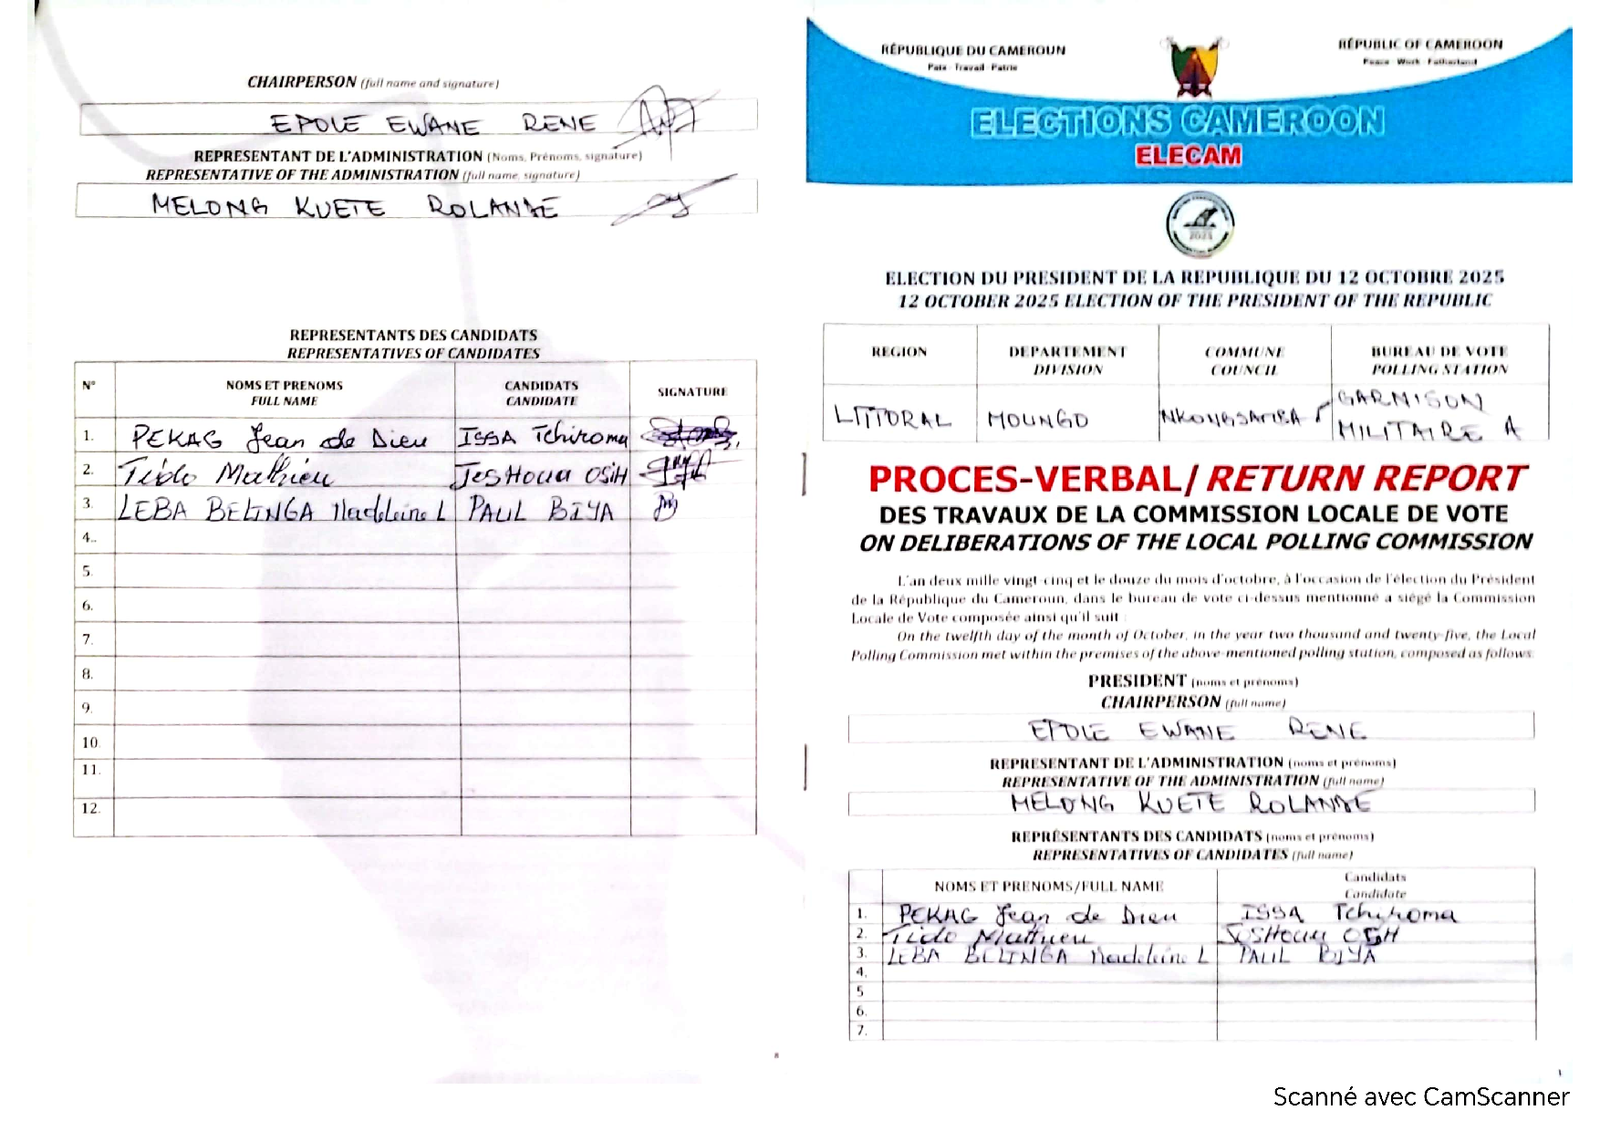 CHAIRPERSON (full name and signature)
EPOLE EWANE RENE
REPRESENTANT DE L'ADMINISTRATION (Noms, Prénoms, signature)
REPRESENTATIVE OF THE ADMINISTRATION (full name, signature)
MELONG KUETE ROLANDE
REPRESENTANTS DES CANDIDATS
REPRESENTATIVES OF CANDIDATES
N° NOMS ET PRENOMS FULL NAME CANDIDATS CANDIDATE SIGNATURE
1. PEKAG Jean de Dieu ISSA Tchiroma
2. Tido Mathieu JosHoua OSIH
3. LEBA BELINGA Madeleine L PAUL BIYA
4..
5.
6.
7.
8.
9.
10.
11.
12.
8
RÉPUBLIQUE DU CAMEROUN
Paix - Travail - Patrie
RÉPUBLIC OF CAMEROON
Peace - Work - Fatherland
ELECTIONS CAMEROON
ELECAM
2025
ELECTION DU PRESIDENT DE LA REPUBLIQUE DU 12 OCTOBRE 2025
12 OCTOBER 2025 ELECTION OF THE PRESIDENT OF THE REPUBLIC
REGION DEPARTEMENT DIVISION COMMUNE COUNCIL BUREAU DE VOTE POLLING STATION
LITTORAL MOUNGO NKONGSAMBA GARNISON MILITAIRE A
PROCES-VERBAL/ RETURN REPORT
DES TRAVAUX DE LA COMMISSION LOCALE DE VOTE
ON DELIBERATIONS OF THE LOCAL POLLING COMMISSION
L'an deux mille vingt-cinq et le douze du mois d'octobre, à l'occasion de l'élection du Président
de la République du Cameroun, dans le bureau de vote ci-dessus mentionné a siégé la Commission
Locale de Vote composée ainsi qu'il suit :
On the twelfth day of the month of October, in the year two thousand and twenty-five, the Local
Polling Commission met within the premises of the above-mentioned polling station, composed as follows:
PRESIDENT (noms et prénoms)
CHAIRPERSON (full name)
EPOLE EWANE RENE
REPRESENTANT DE L'ADMINISTRATION (noms et prénoms)
REPRESENTATIVE OF THE ADMINISTRATION (full name)
MELONG KUETE ROLANDE
REPRÉSENTANTS DES CANDIDATS (noms et prénoms)
REPRESENTATIVES OF CANDIDATES (full name)
NOMS ET PRENOMS/FULL NAME Candidats Candidate
1. PEKAG Jean de Dieu ISSA Tchiroma
2. Tido Mathieu JosHoua OSIH
3. LEBA BELINGA Madeleine L PAUL BIYA
4.
5
6.
7.
1
Scanné avec CamScanner